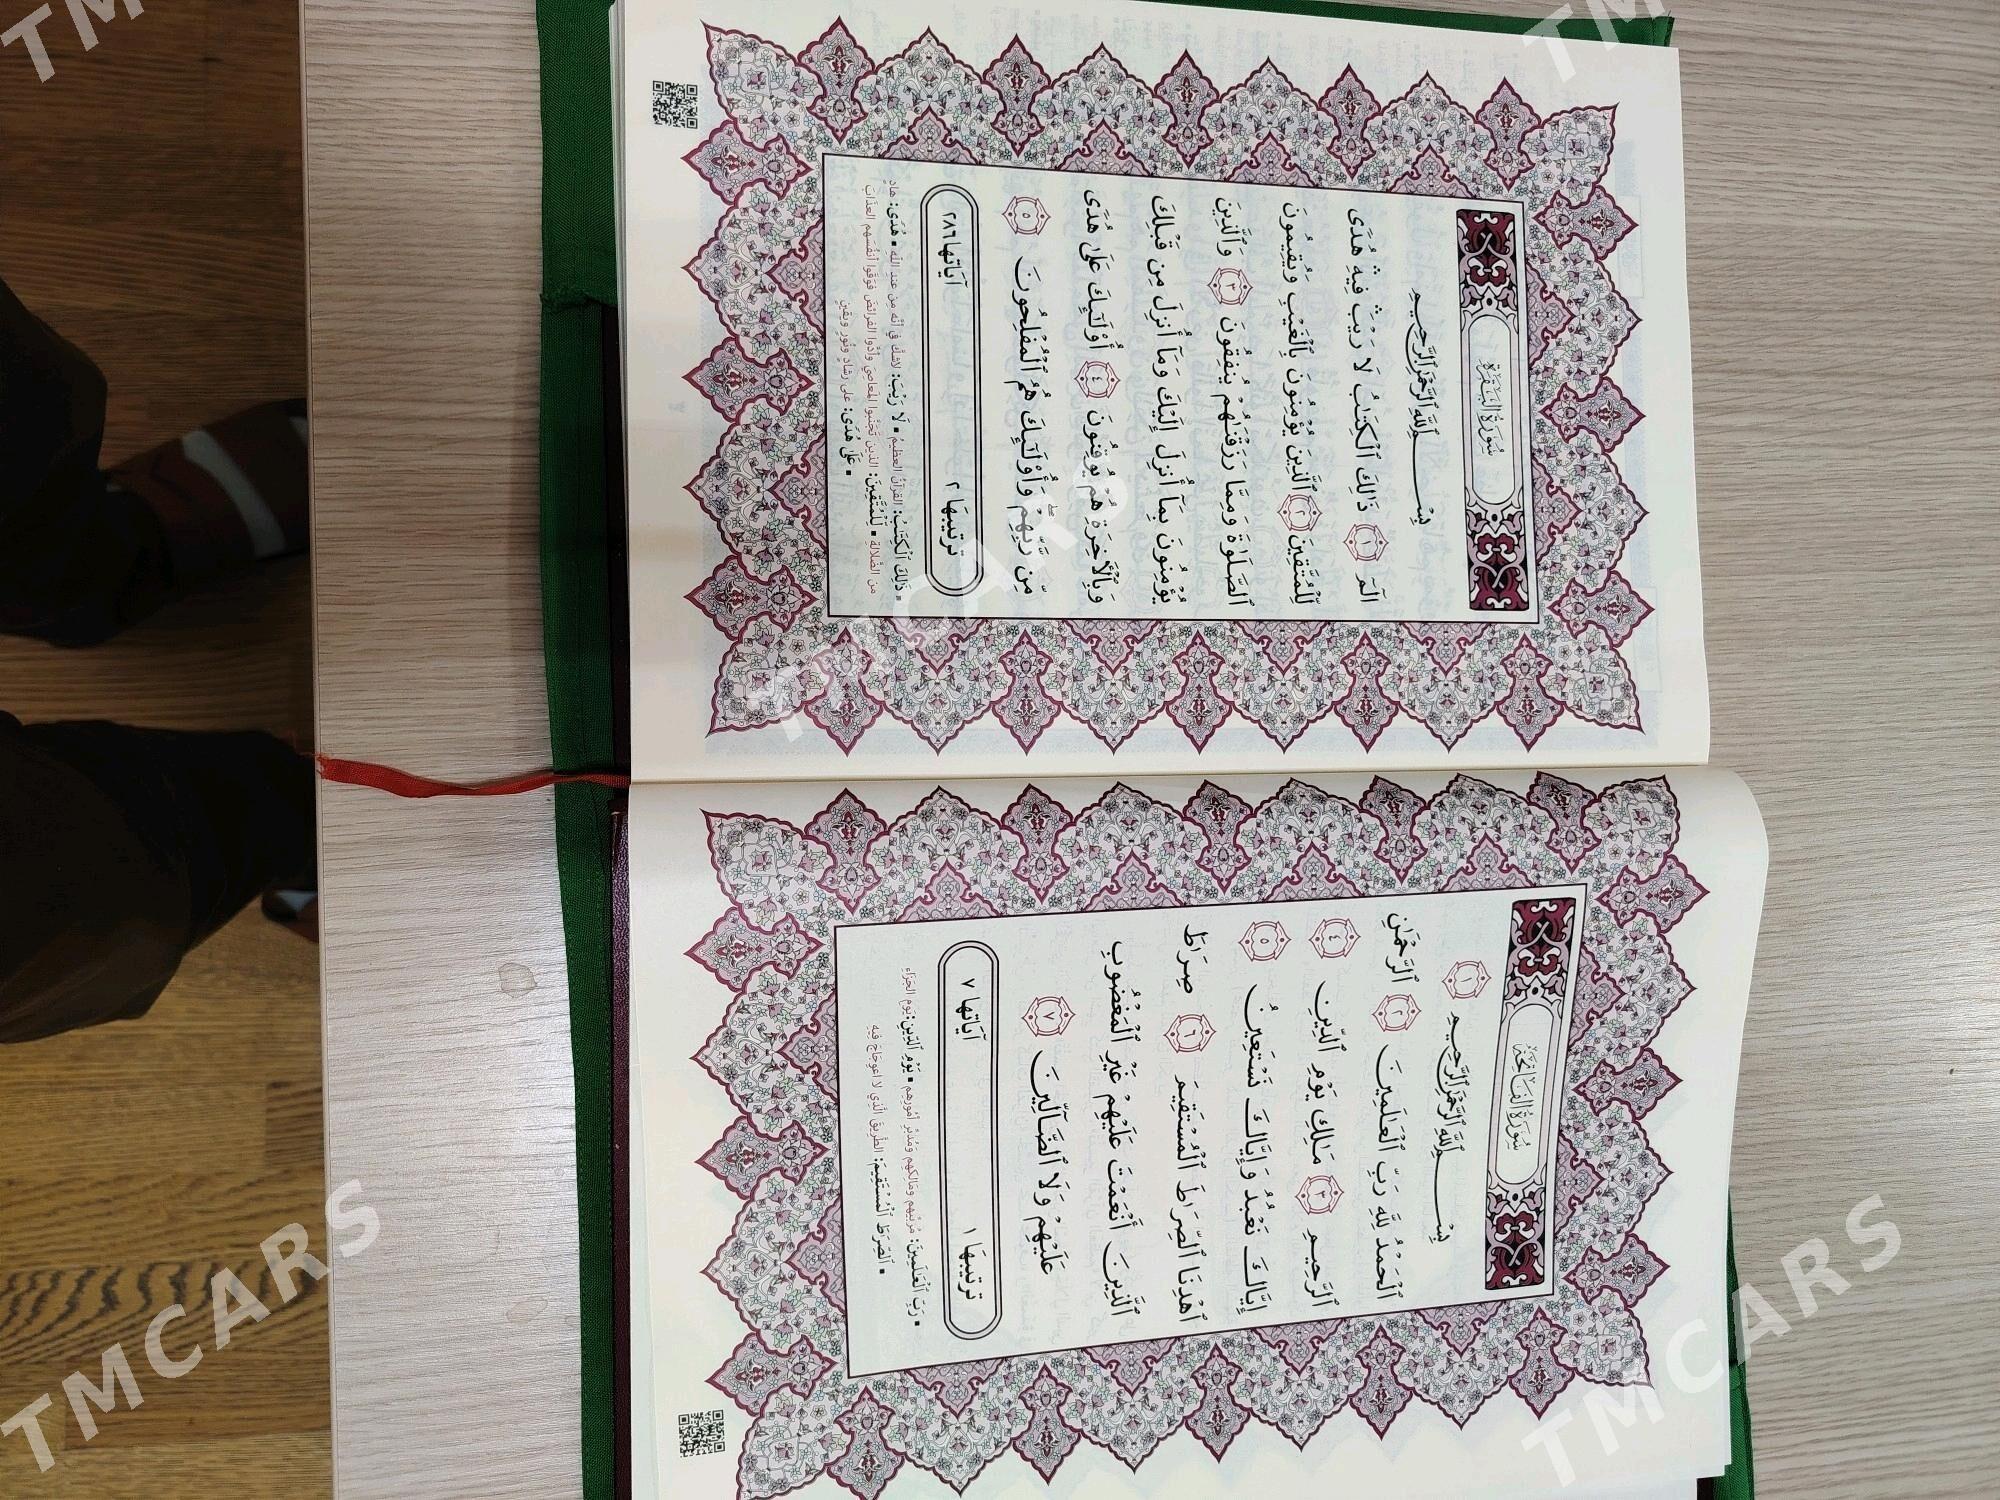 سُورَةُ الْفَاتِحَةِ
بِسْمِ ٱللَّهِ ٱلرَّحْمَٰنِ ٱلرَّحِيمِ ١
ٱلْحَمْدُ لِلَّهِ رَبِّ ٱلْعَٰلَمِينَ ٢ ٱلرَّحْمَٰنِ
ٱلرَّحِيمِ ٣ مَٰلِكِ يَوْمِ ٱلدِّينِ ٤
إِيَّاكَ نَعْبُدُ وَإِيَّاكَ نَسْتَعِينُ ٥
ٱهْدِنَا ٱلصِّرَٰطَ ٱلْمُسْتَقِيمَ ٦ صِرَٰطَ
ٱلَّذِينَ أَنْعَمْتَ عَلَيْهِمْ غَيْرِ ٱلْمَغْضُوبِ
عَلَيْهِمْ وَلَا ٱلضَّآلِّينَ ٧
ترتيبها ١ آياتها ٧
▪ رَبِّ ٱلْعَٰلَمِينَ: مُرَبِّيهِم ومَالِكِهِم ومُدَبِّرِ أمُورِهِم ▪ يَوْمِ ٱلدِّينِ: يَومِ الجَزَاءِ
▪ ٱلصِّرَٰطَ ٱلْمُسْتَقِيمَ: الطَّرِيقَ الَّذي لا اعوِجَاجَ فِيهِ
سُورَةُ الْبَقَرَةِ
بِسْمِ ٱللَّهِ ٱلرَّحْمَٰنِ ٱلرَّحِيمِ
الٓمٓ ١ ذَٰلِكَ ٱلْكِتَٰبُ لَا رَيْبَ ۛ فِيهِ ۛ هُدًى
لِّلْمُتَّقِينَ ٢ ٱلَّذِينَ يُؤْمِنُونَ بِٱلْغَيْبِ وَيُقِيمُونَ
ٱلصَّلَوٰةَ وَمِمَّا رَزَقْنَٰهُمْ يُنفِقُونَ ٣ وَٱلَّذِينَ
يُؤْمِنُونَ بِمَآ أُنزِلَ إِلَيْكَ وَمَآ أُنزِلَ مِن قَبْلِكَ
وَبِٱلْءَاخِرَةِ هُمْ يُوقِنُونَ ٤ أُو۟لَٰٓئِكَ عَلَىٰ هُدًى
مِّن رَّبِّهِمْ ۖ وَأُو۟لَٰٓئِكَ هُمُ ٱلْمُفْلِحُونَ ٥
ترتيبها ٢ آياتها ٢٨٦
▪ ذَٰلِكَ ٱلْكِتَٰبُ: القُرآنُ العَظِيمُ ▪ لَا رَيْبَ: لَاشَكَّ فِي أنَّه مِن عِندِ اللهِ ▪ هُدًى: هَادٍ
مِن الضَّلَالَةِ ▪ لِلْمُتَّقِينَ: الذينَ تَجَنَّبُوا المَعَاصِيَ وأدَّوا الفَرائضَ فَوَقَوا أنفُسَهم العَذَابَ
▪ عَلَىٰ هُدًى: عَلى رَشَادٍ ونُورٍ ويَقِينٍ
TMCARS
TMCARS
TMCARS